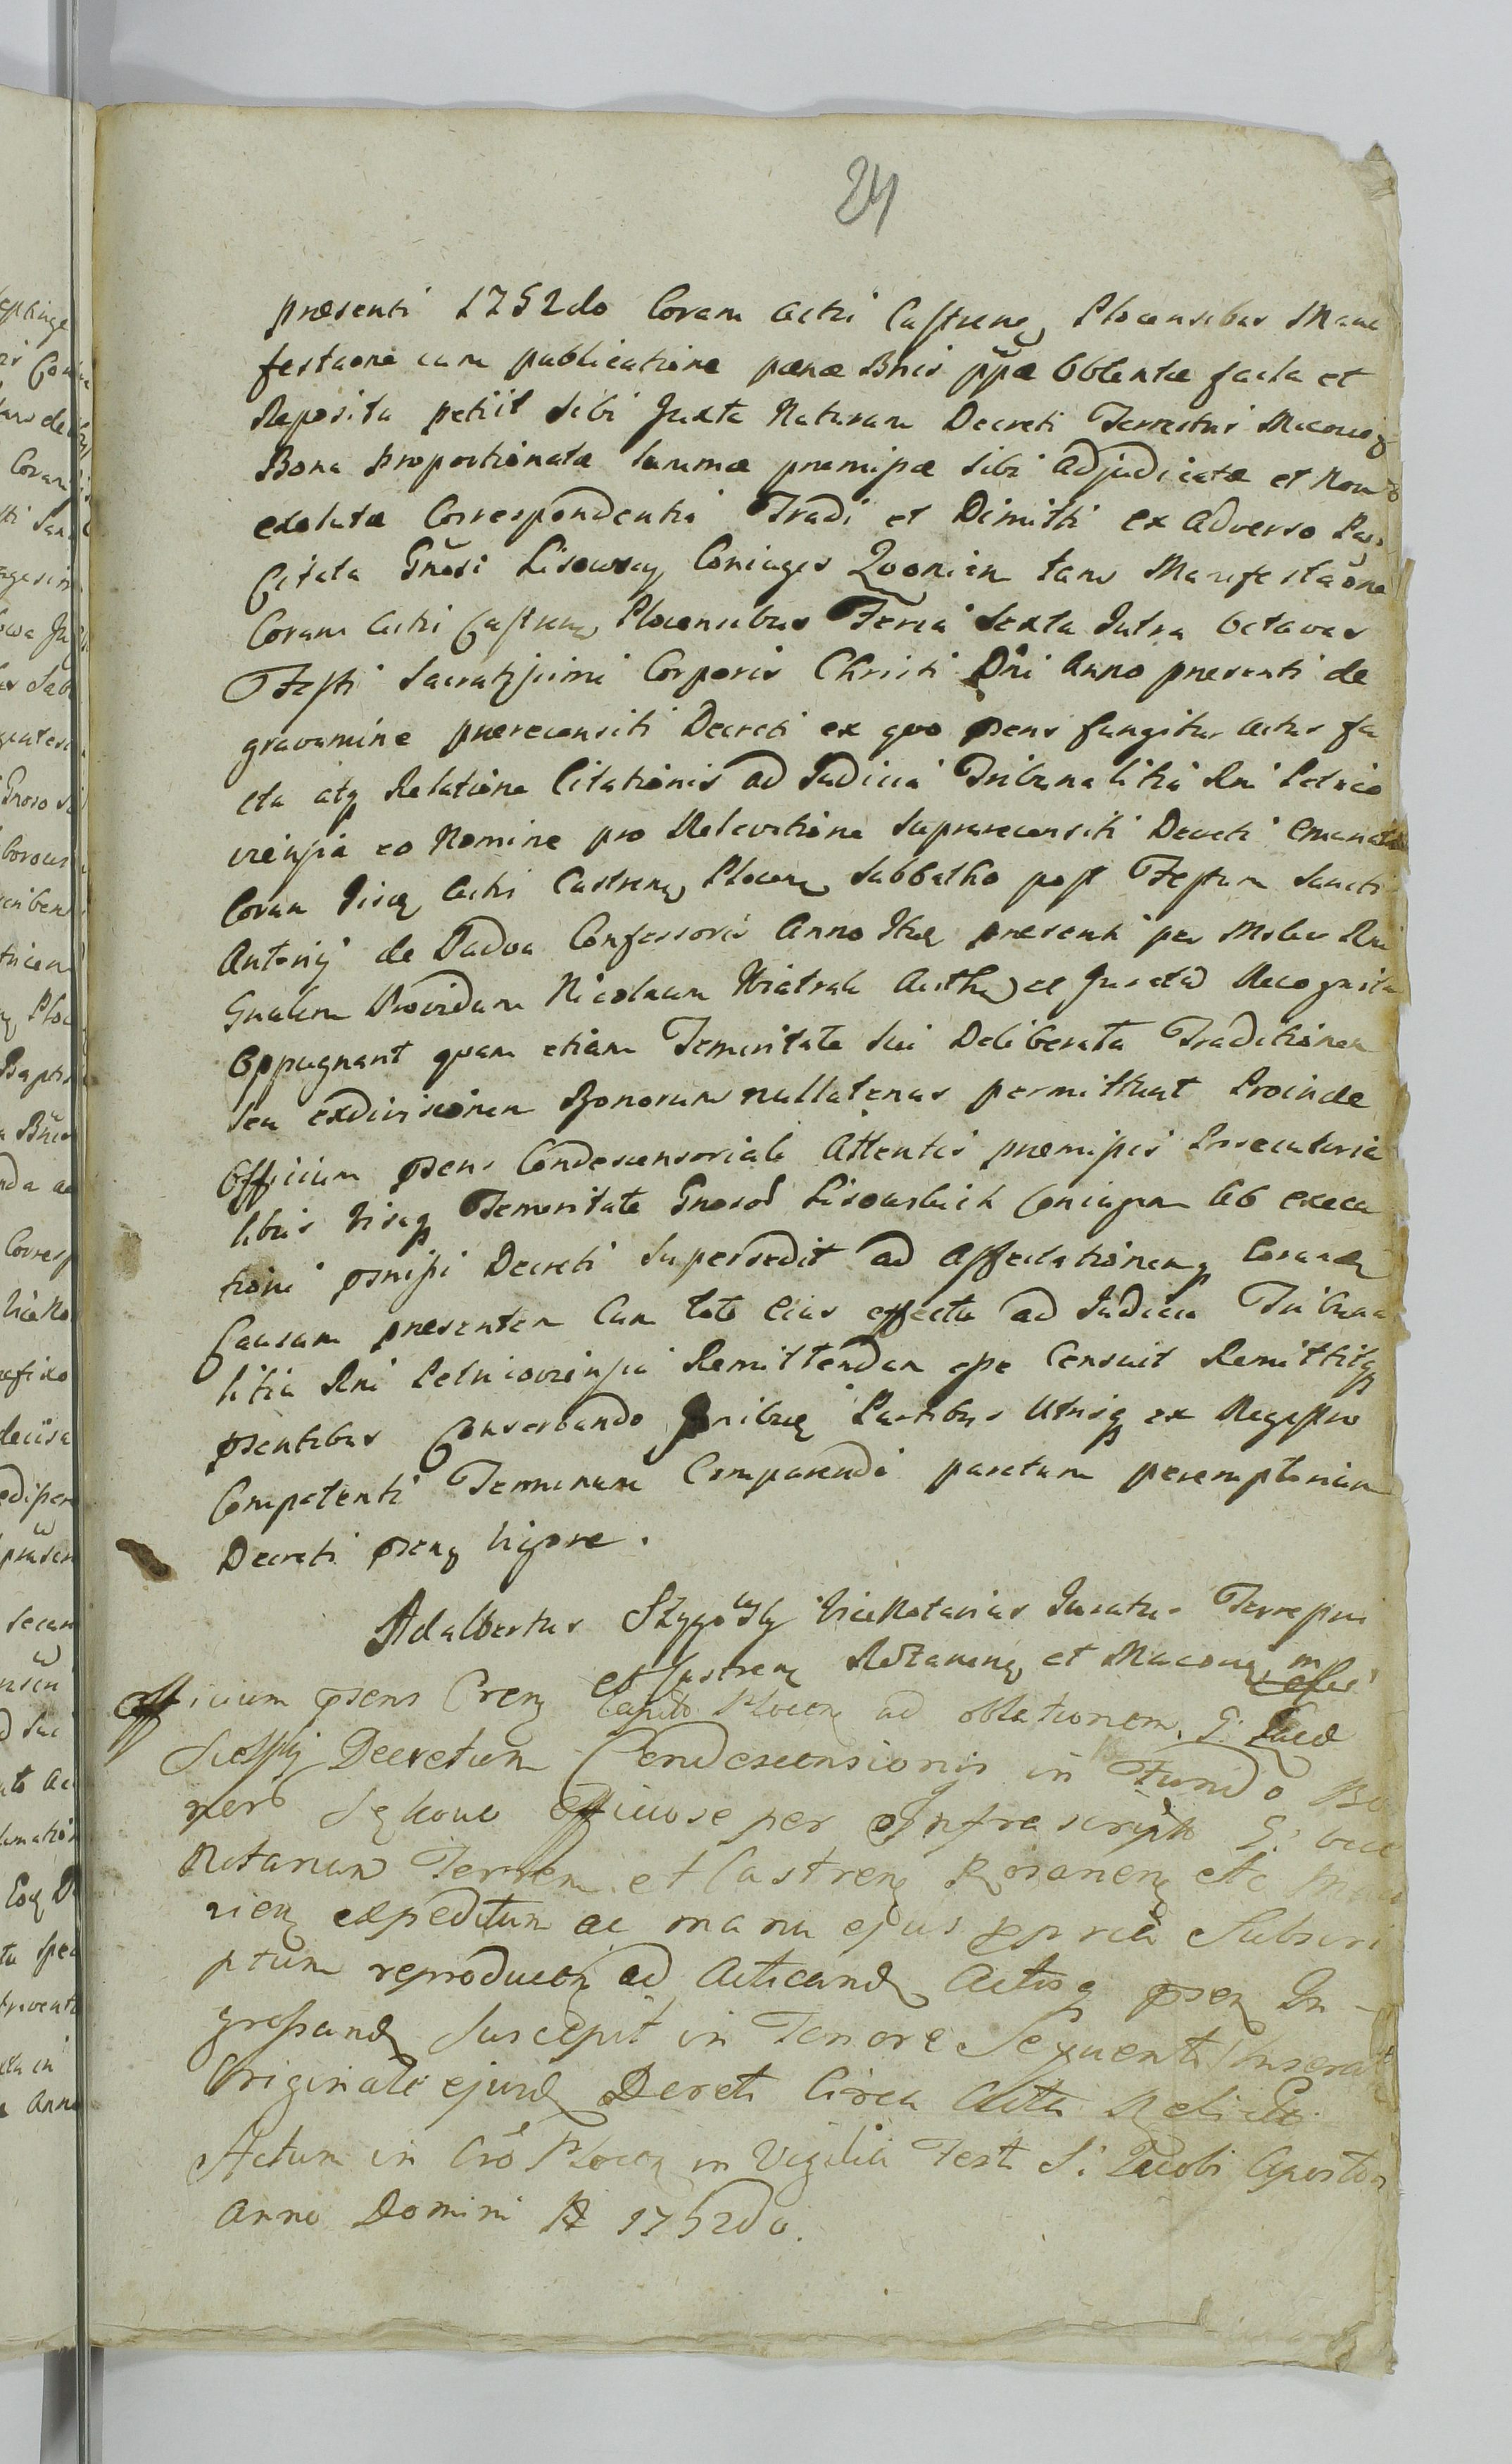 24
præsenti 1752do Coram Actis Castren Plocensibus Mani
festaone cum publicatione pænæ Bnis ppæ Obtentæ facta et
Reposita petiit Sibi Juxta Naturam Decreti Terrestris Macovien
Bona proportionata Summæ præmissæ Sibi adjudicatæ et Non
exolutæ Correspondentia Tradi et Dimitti ex adverso Pars
Citata Gnosi Lisowscy Coniuges Quoniam tam Manifestaone
Coram Actis Castren Plocensibus Feria Sexta Intra Octavas
Festi Sacratissimi Corporis Christi Dni Anno præsenti de
gravamine prærecensiti Decreti ex quo psens fungitur Actus fa
cta atq Relatione Citationis ad Judicia Tribunalitia Rni Petrico
viensia eo Nomine pro Relevatione Suprarecensiti Decreti Emanata
Coram Iisd Actis Castren Plocen Sabbatho post Festum Sancti
Antonij de Padva Confessoris Anno Itid præsenti per Mslem Rni
Gnalem Providum Nicolaum Wiatrak Auth et Juratã Recognita
Oppugnant quam etiam Temeritate Sui Deliberata Traditionem
Seu exdivisionem Bonorum nullatenus permittunt Proinde
Officium psens Condescensoriale Attentis præmissis Prosecutoria
libus Visaq Temeritate Gnosor Lisowskich Coniugum Ab execu
tioni pmissi Decreti Supersedit ad affectationemq Eorund
Causam præsentem Cum toto Eius effectu ad Judicia Tribuna
litia Rni Petricoviensia Remittendam esse Censuit Remittitq
psentibus Conservando Partibus Utrisq ex Regestro
Competenti Terminum Comparendi paratum peremptorium
Decreti psens vigore.
Adalbertus ViceNotarius Juratus Terrestris
et Castren Rozanen et Macovien mp
Officium psens Cren Capit Plocen ad oblationem G.
Decretum Condescensionis in Fundo Bo
nor Officiose per Infrascript G. Vice
Notarium Terren et Castren Rozanen etc Maco
vien expeditum ac manu ejus ppria Subscri
ptum reproducen ad Acticand Actisq psen In-
grossand Suscepit in Tenore Sequenti Inserat
Originale ejusd Decreti Circa Acta Relict
Actum in Cro Plocen in Vigilia Festi S. Jacobi Apostoli
Anno Domini 1752do.